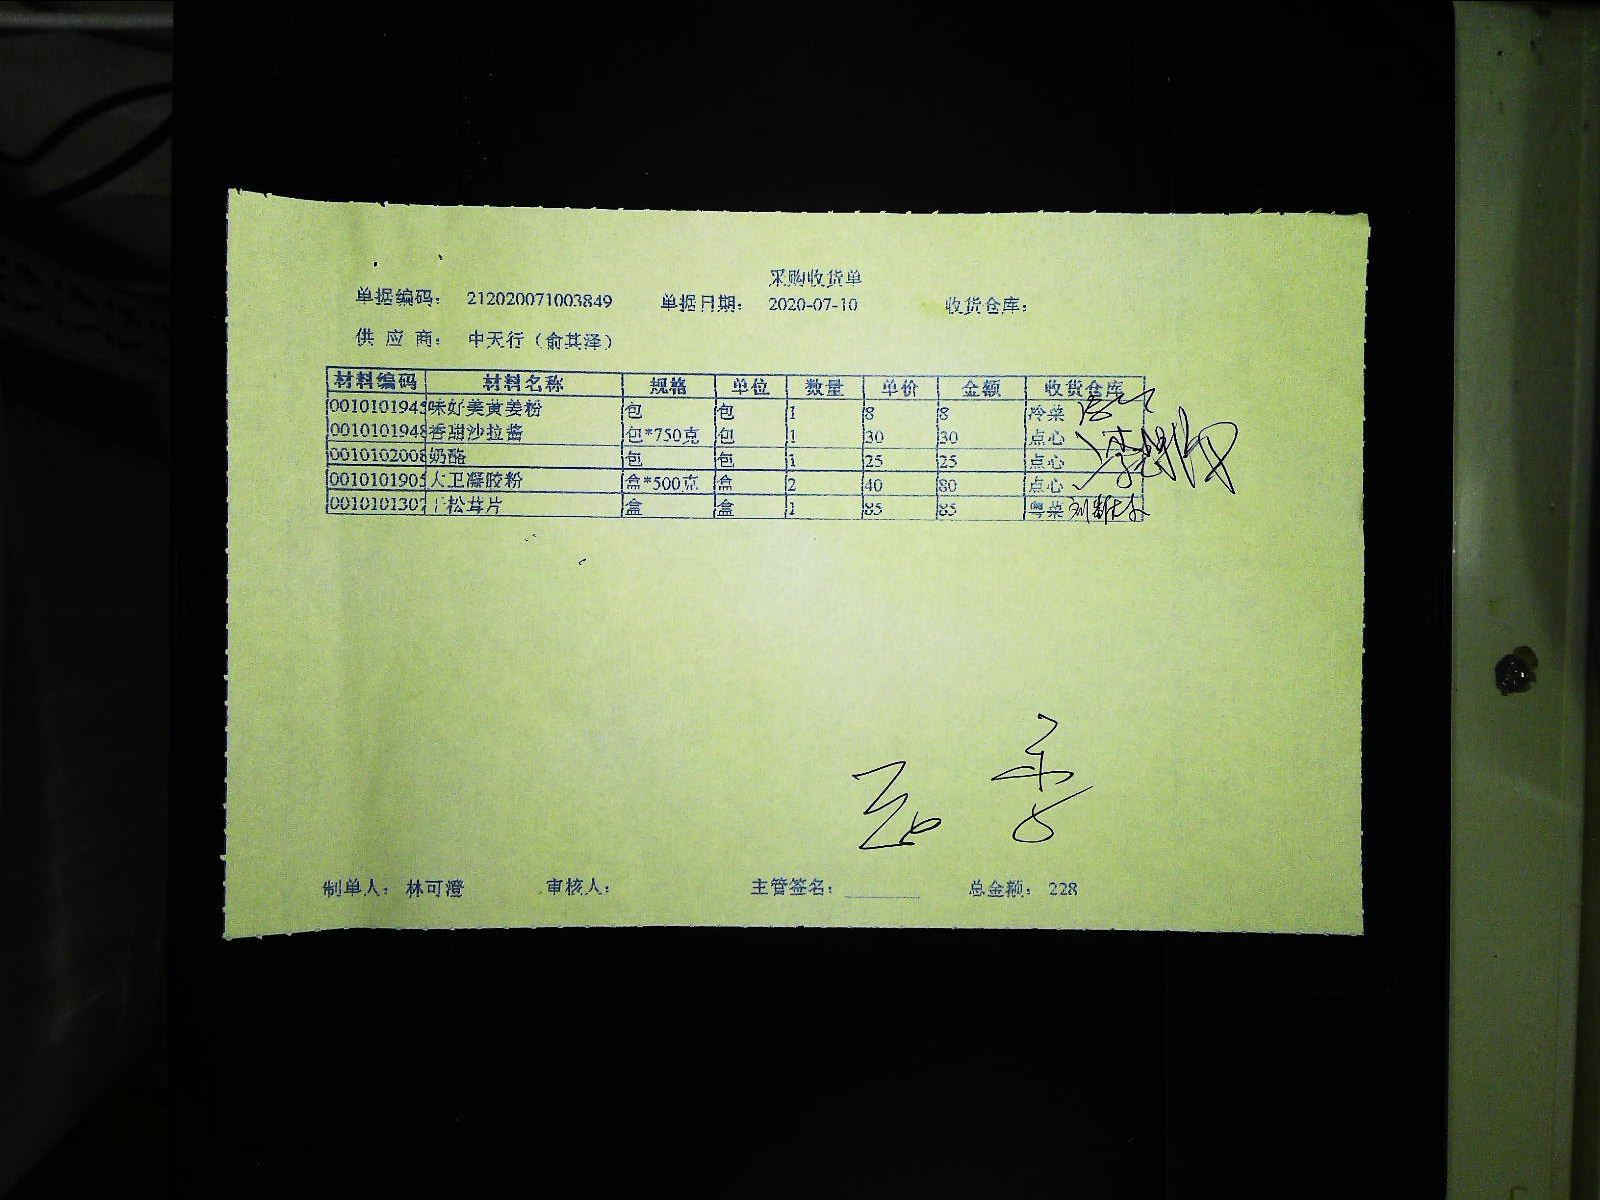 采购收货单
单据编码： 212020071003849 单据日期： 2020-07-10 收货仓库：
供 应 商： 中天行（俞其泽）
材料编码 材料名称 规格 单位 数量 单价 金额 收货仓库
0010101945 味好美黄姜粉 包 包 1 8 8 冷菜
0010101948 香甜沙拉酱 包*750克 包 1 30 30 点心
0010102008 奶酪 包 包 1 25 25 点心
0010101905 大卫凝胶粉 盒*500克 盒 2 40 80 点心
0010101307 干松茸片 盒 盒 1 85 85 粤菜
制单人： 林可澄 审核人： 主管签名： 总金额： 228